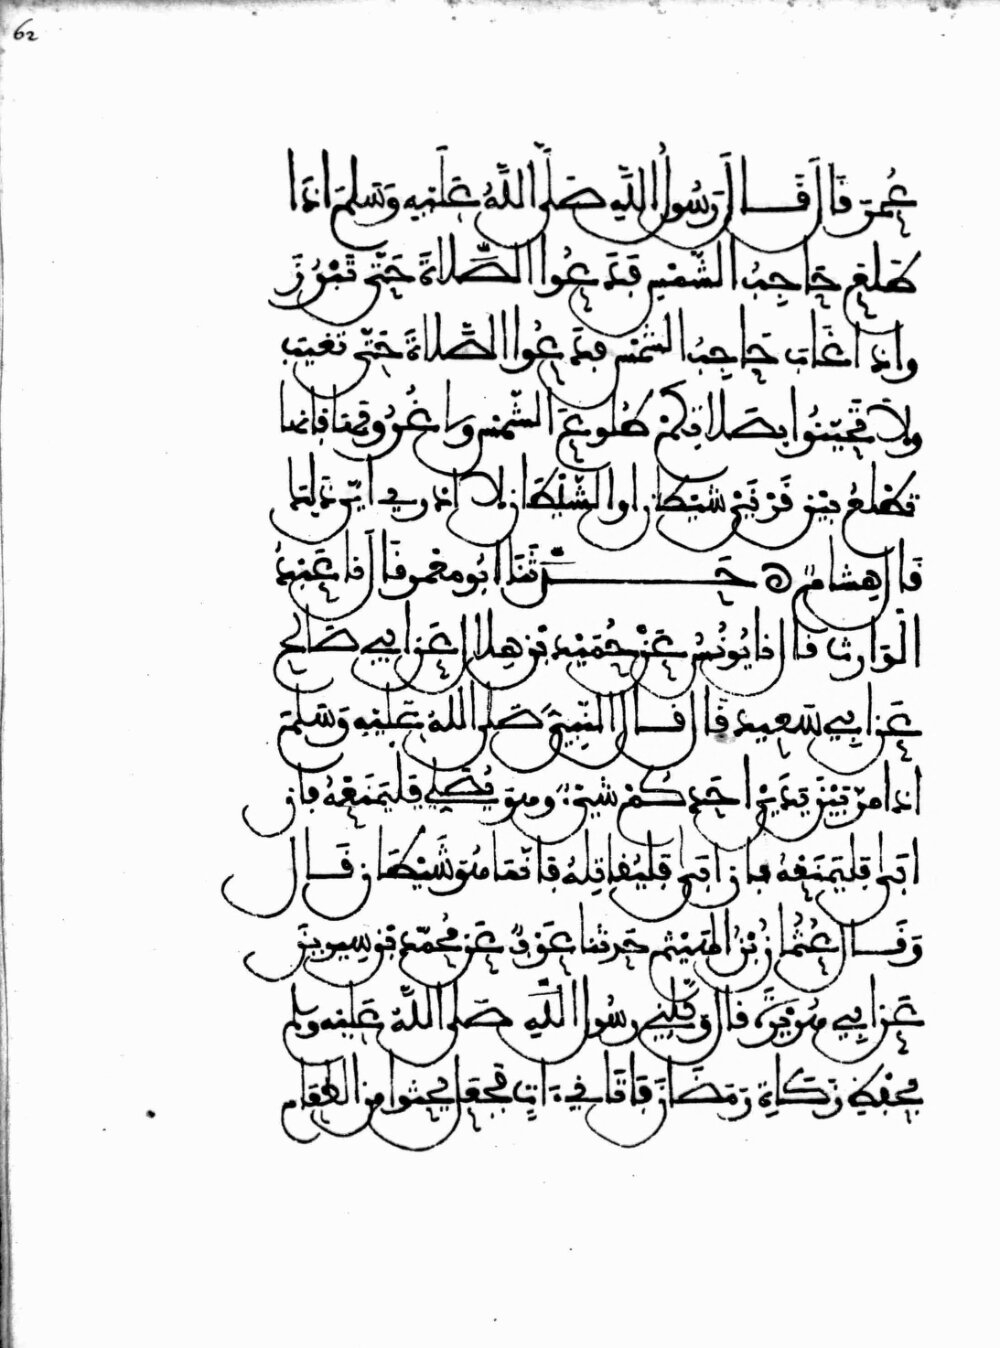 62
عُمَرَ قَالَ قَالَ رَسُولُ اللَّهِ صَلَّى اللَّهُ عَلَيْهِ وَسَلَّمَ اذَا
طَلَعَ حَاجِبُ الشَّمْسِ فَدَعُوا الصَّلَاةَ حَتَّى تَبْرُزَ
واذا غَابَ حَاجِبُ الشَّمْسِ فَدَعُوا الصَّلَاةَ حَتَّى تَغِيبَ
ولا تَحَيَّنُوا بِصَلَاتِكُمْ طُلُوعَ الشَّمْسِ ولا غُرُوبَهَا فَإنها
تَطْلُعُ بَيْنَ قَرْنَيْ شَيْطَانٍ اوِ الشَّيْطَانِ لا ادْرِي ايَّ ذَلِكَ
قَالَ هِشَامٌ ه حَدَّثَنَا ابُو مَعْمَرٍ قَالَ نا عَبْدُ
الْوَارِثِ قَالَ نا يُونُسُ عَنْ حُمَيْدِ بْنِ هِلَالٍ عَنْ ابِي صَالِحٍ
عَنْ ابِي سَعِيدٍ قَالَ قَالَ النَّبِيُّ صَلَّى اللَّهُ عَلَيْهِ وَسَلَّمَ
اذا مَرَّ بَيْنَ يَدَيْ احَدِكُمْ شَيْءٌ وهوَ يُصَلِّي فَلْيَمْنَعْهُ فَإن
ابَى فَلْيَمْنَعْهُ فَإن ابَى فَلْيُقَاتِلْهُ فَإنَّمَا هُوَ شَيْطَانٌ قَالَ
وَقَالَ عُثْمَانُ بْنُ الهَيْثَمِ حَدثنا عَوْفٌ عَنْ مُحَمَّدِ بْنِ سِيرِينَ
عَنْ ابِي هُرَيْرَةَ قَالَ وَكَّلَنِي رَسُولُ اللَّهِ صَلَّى اللَّهُ عَلَيْهِ وسلم
بِحِفْظِ زَكَاةِ رَمَضَانَ فَأتَانِي ءاتٍ فَجَعَلَ يَحْثُوا مِنَ الطَّعَامِ